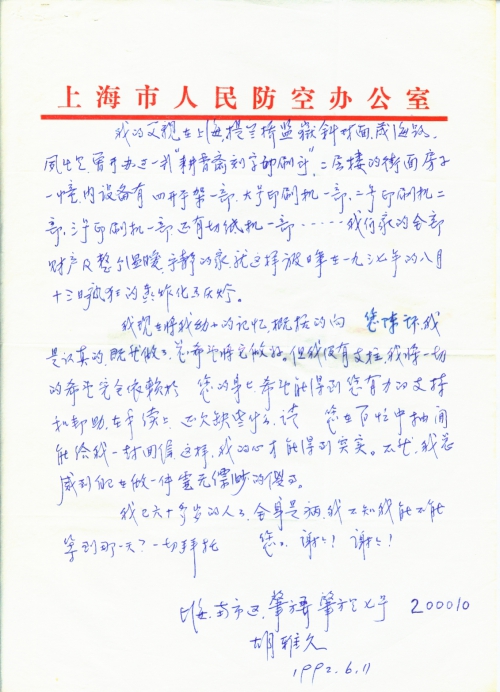 上海市人民防空办公室
我的父亲在上海,提兰桥监狱斜对面,威海路,
曾开办过一爿"耕斋刻字印刷所",二层楼的街面房子
一幢,内设备有四开手架一部,大号印刷机一部,二号印刷机二
部,三号印刷机一部还有切纸机一部……我们家的全部
财产及整个温暖,宁静的家,就这样被日军在一九三七年的八月
十三日疯狂的轰炸化为灰烬。
我现在将我幼小的记忆,概括的向 您陈述,我
是认真的,既然做了,总希望将它做好。但我没有支柱,我将一切
的希望完全依赖於 您的身上,希望能得到您有力的支持
和帮助,在手续上,还欠缺些什么,请 您在百忙中抽闲
能给我一封回信,这样,我的心才能得到实实。不然,我总
感到自己在做一件虚无缥缈的傻事。
我已六十多岁的人了,全身是病,我不知我能不能
等到那一天?一切拜托 您。谢谢!谢谢!
上海,南市区,肇方弄 肇方弄七号 200010
胡雅久
1992.6.11